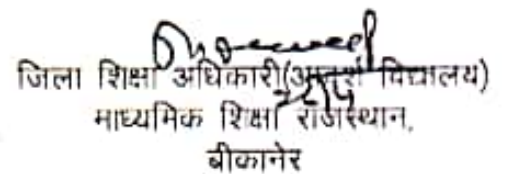 जिला शिक्षा अधिकारी(आदर्श विद्यालय)
माध्यमिक शिक्षा राजस्थान,
बीकानेर